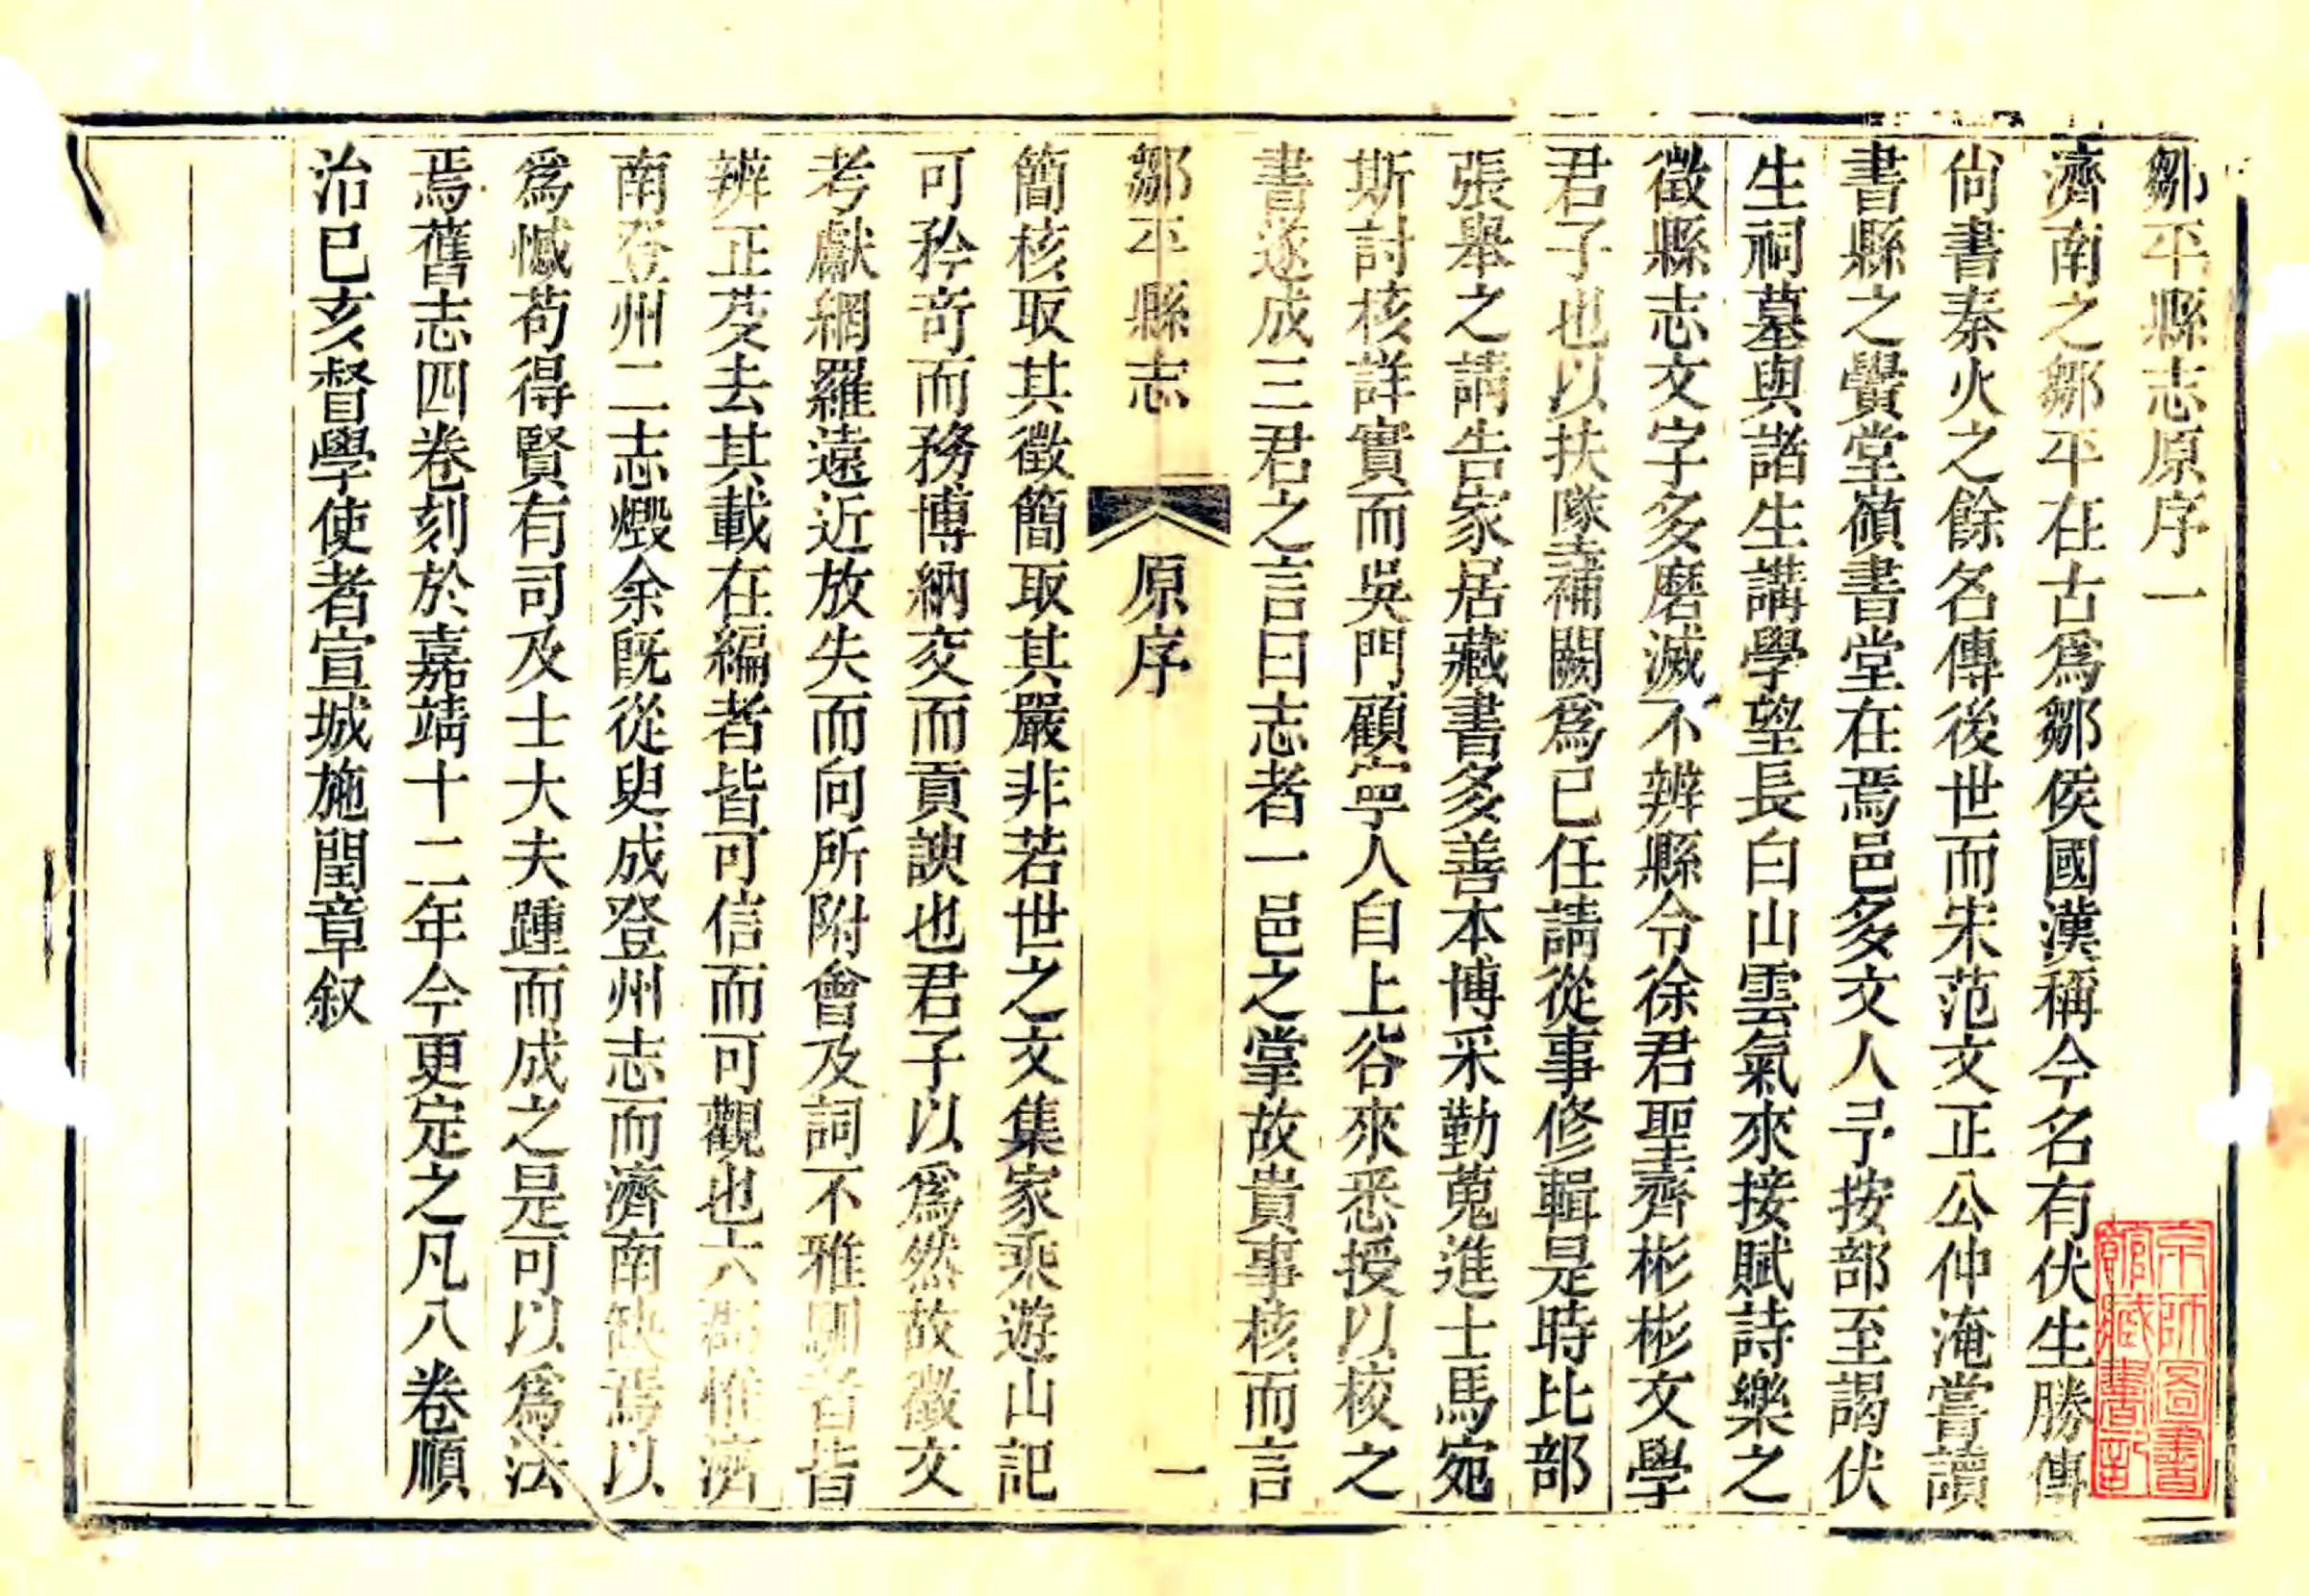 鄒平縣志原序一
濟南之鄒平在古爲鄒侯國漢稱今名有伏生勝傳
尙書秦火之餘名傳後世而宋范文正公仲淹嘗讀
書縣之黌堂嶺書堂在焉邑多文人予按部至謁伏
生祠墓與諸生講學望長白山雲氣來接賦詩樂之
徵縣志文字多磨滅不辨縣令徐君聖齊彬彬文學
君子也以扶墜補闕爲已任請從事修輯是時比部
張舉之請告家居藏書多善本博采勤蒐進士馬宛
斯討核詳實而吳門顧寧人自上谷來悉授以核之
書遂成三君之言曰志者一邑之掌故貴事核而言
鄒平縣志
原序
一
簡核取其徵簡取其嚴非若世之文集家乘遊山記
可矜奇而務博納交而貢諛也君子以爲然故徵文
考獻網羅遠近放失而向所附會及詞不雅馴者皆
辨正芟去其載在編者皆可信而可觀也六郡惟濟
南登州二志燬余旣從臾成登州志而濟南缺焉以
爲憾苟得賢有司及士大夫踵而成之是可以爲法
焉舊志四卷刻於嘉靖十二年今更定之凡八卷順
治已亥督學使者宣城施閏章叙